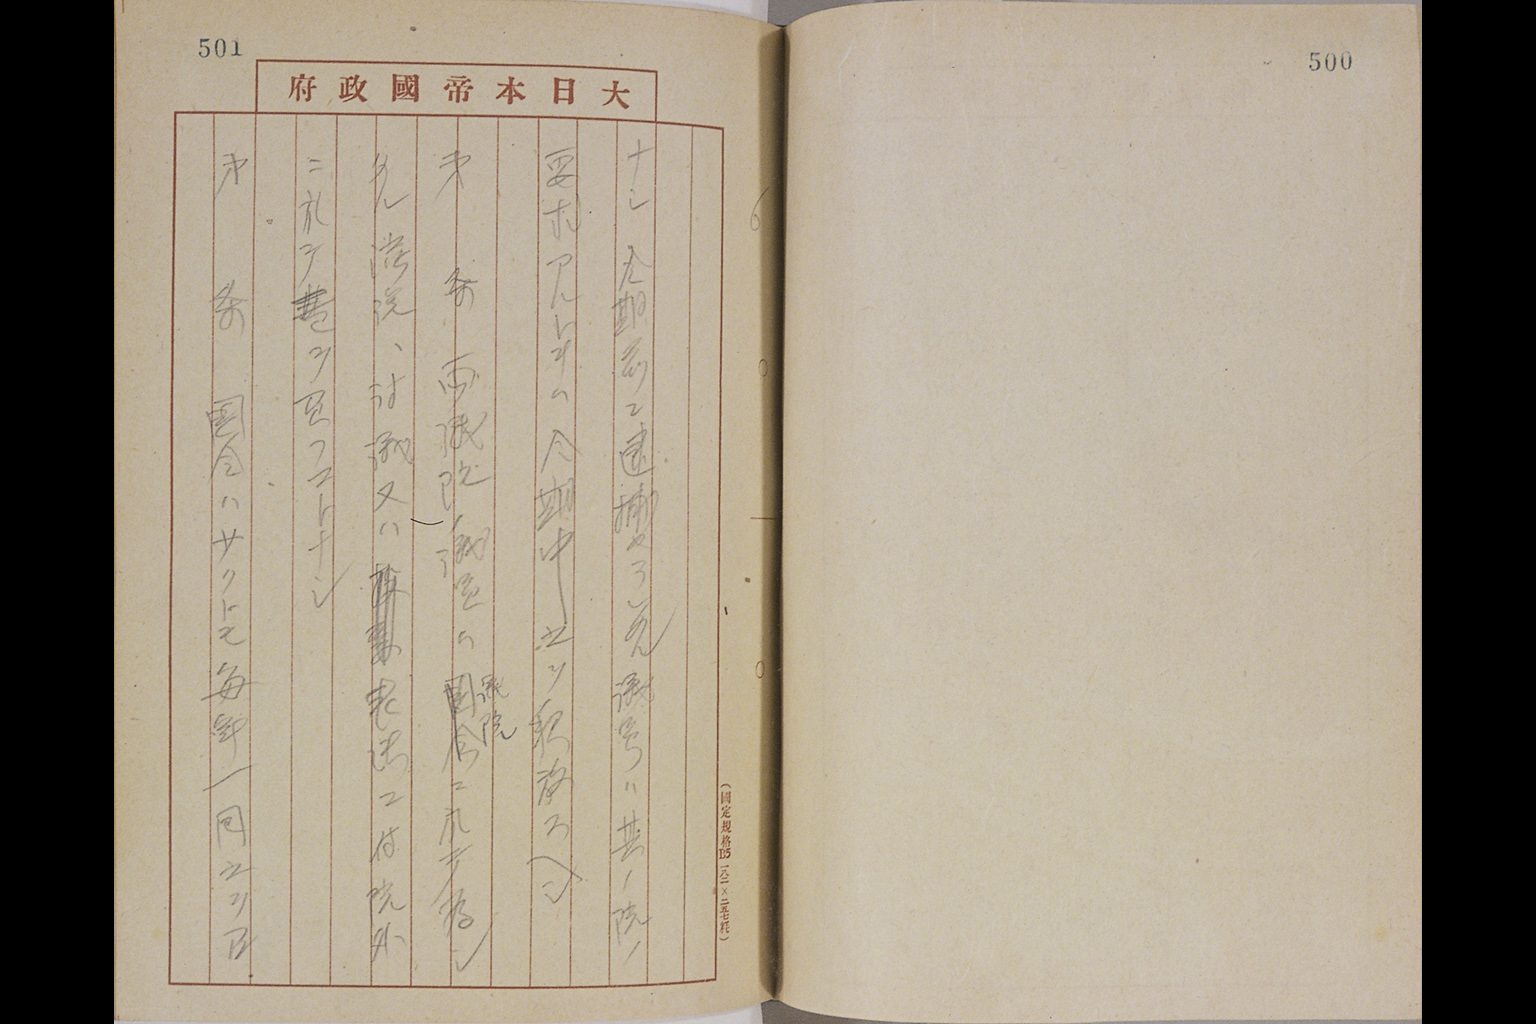 500
501
大日本帝國政府
ナシ会期前ニ逮捕セラレタル議員ハ其ノ院ノ
要求アルトキハ会期中之ヲ釈放スヘシ
第　条　両議院ノ議員ハ議院ニ於テ為シ
タル演説、討議又ハ表決ニ付院外
ニ於テ責ヲ負フコトナシ
第　条　国会ハ少クトモ毎年一回之ヲ召
(國定規格B5 一八二×二五七粍)